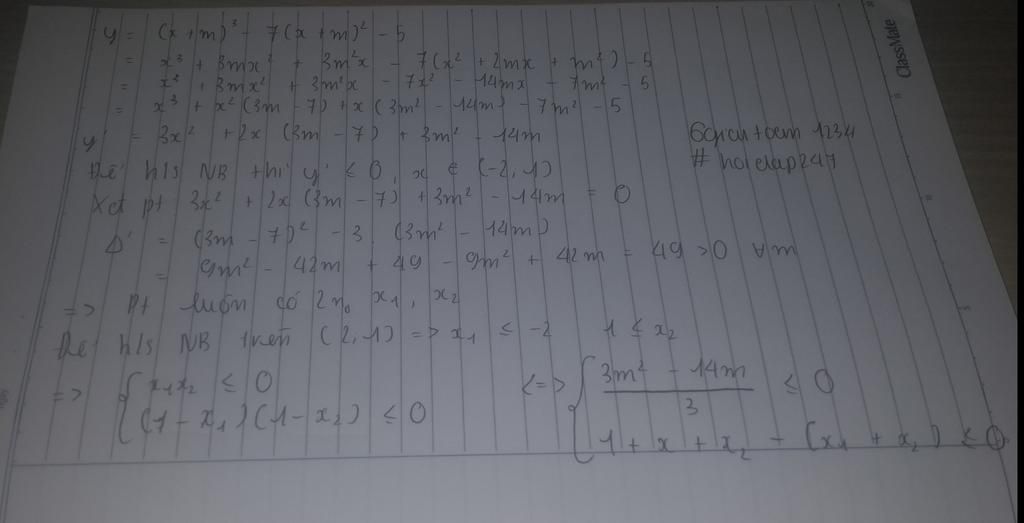 y = (x + m)³ - 7(x + m)² - 5
= x³ + 3mx² + 3m²x - 7(x² + 2mx + m²) - 5
= x³ + 3mx² + 3m²x - 7x² - 14mx - 7m² - 5
= x³ + x²(3m - 7) + x(3m² - 14m) - 7m² - 5
y' = 3x² + 2x(3m - 7) + 3m² - 14m
Để h/s NB thì y' ≤ 0, x ∈ (-2, 1)
Xét pt 3x² + 2x(3m - 7) + 3m² - 14m = 0
Δ' = (3m - 7)² - 3.(3m² - 14m)
= 9m² - 42m + 49 - 9m² + 42m = 49 > 0 ∀m
=> Pt luôn có 2 n₀ x₁, x₂
Để h/s NB trên (2, 1) => x₁ ≤ -2 1 ≤ x₂
=> { x₁x₂ ≤ 0 <=> { (3m² - 14m)/3 ≤ 0
(1 - x₁)(1 - x₂) ≤ 0 1 + x + x₂ - (x₁ + x₂) ≤ 0
1234
# hoidap247
ClassMate